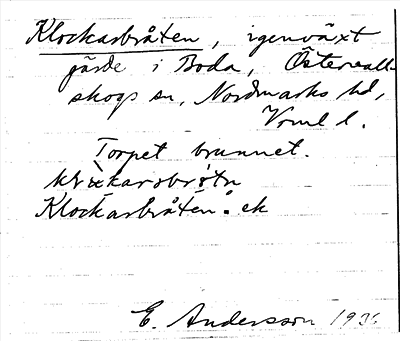 Klockarbråten, igenväxt
gärde i Boda, Östervall-
skogs sn, Nordmarks hd,
Vrml l.
Torpet brunnet.
Klockarbråten: ek
E. Andersson